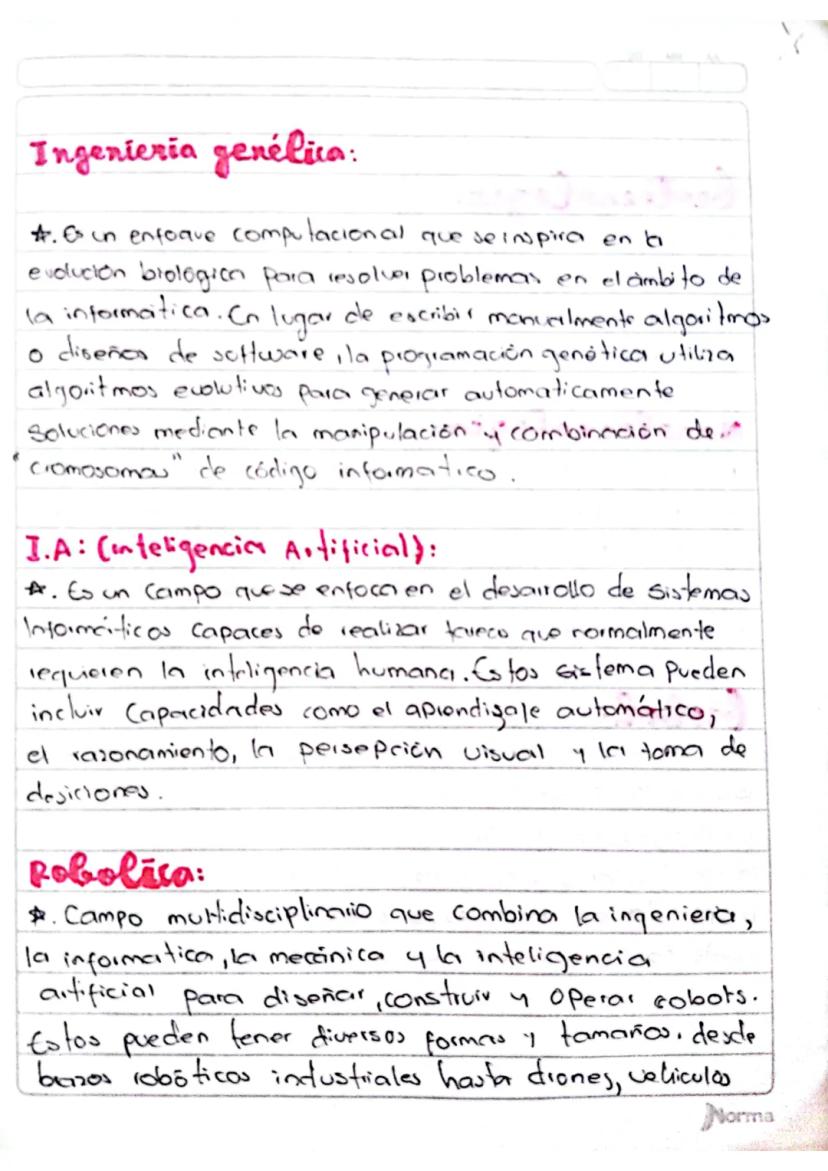 Ingenieria genética:
☆. Es un enfoque computacional que se inspira en la
evolución biológica para resolver problemas en el ámbito de
la informática. En lugar de escribir manualmente algoritmos
o diseños de software, la programación genética utiliza
algoritmos evolutivos para generar automaticamente
soluciones mediante la manipulación "y" combinación de
"cromosomas" de código informatico.
I.A: (inteligencia Artificial):
☆. Es un campo que se enfoca en el desarrollo de sistemas
Informáticos capaces de realizar tareas que normalmente
requieren la inteligencia humana. Estos sistema pueden
incluir Capacidades como el aprendisaje automático,
el razonamiento, la persepción visual y la toma de
desiciones.
Robotica:
☆. Campo multidisciplinario que combina la ingeniera,
la informatica, la mecánica y la inteligencia
artificial para diseñar, construir y operar robots.
Estos pueden tener diversos formas y tamaños. desde
brazos robóticos industriales hasta drones, vehiculos
Norma